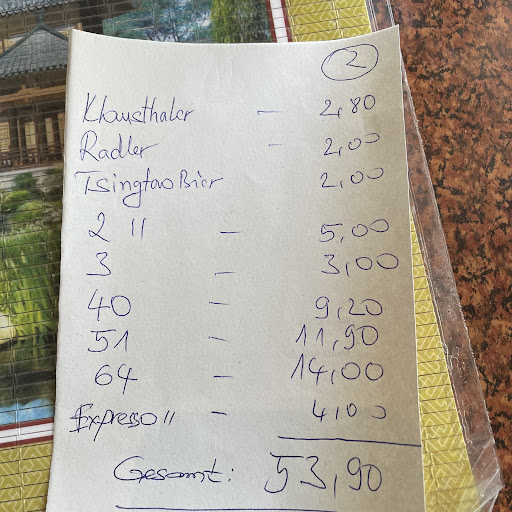 2
Klausthaler — 2,80
Radler - 2,00
Tsingtao Bier 2,00
2 11 — 5,00
3 — 3,00
40 — 9,20
51 — 11,90
64 — 14,00
Expresso 11 — 4,00
Gesamt: 53,90